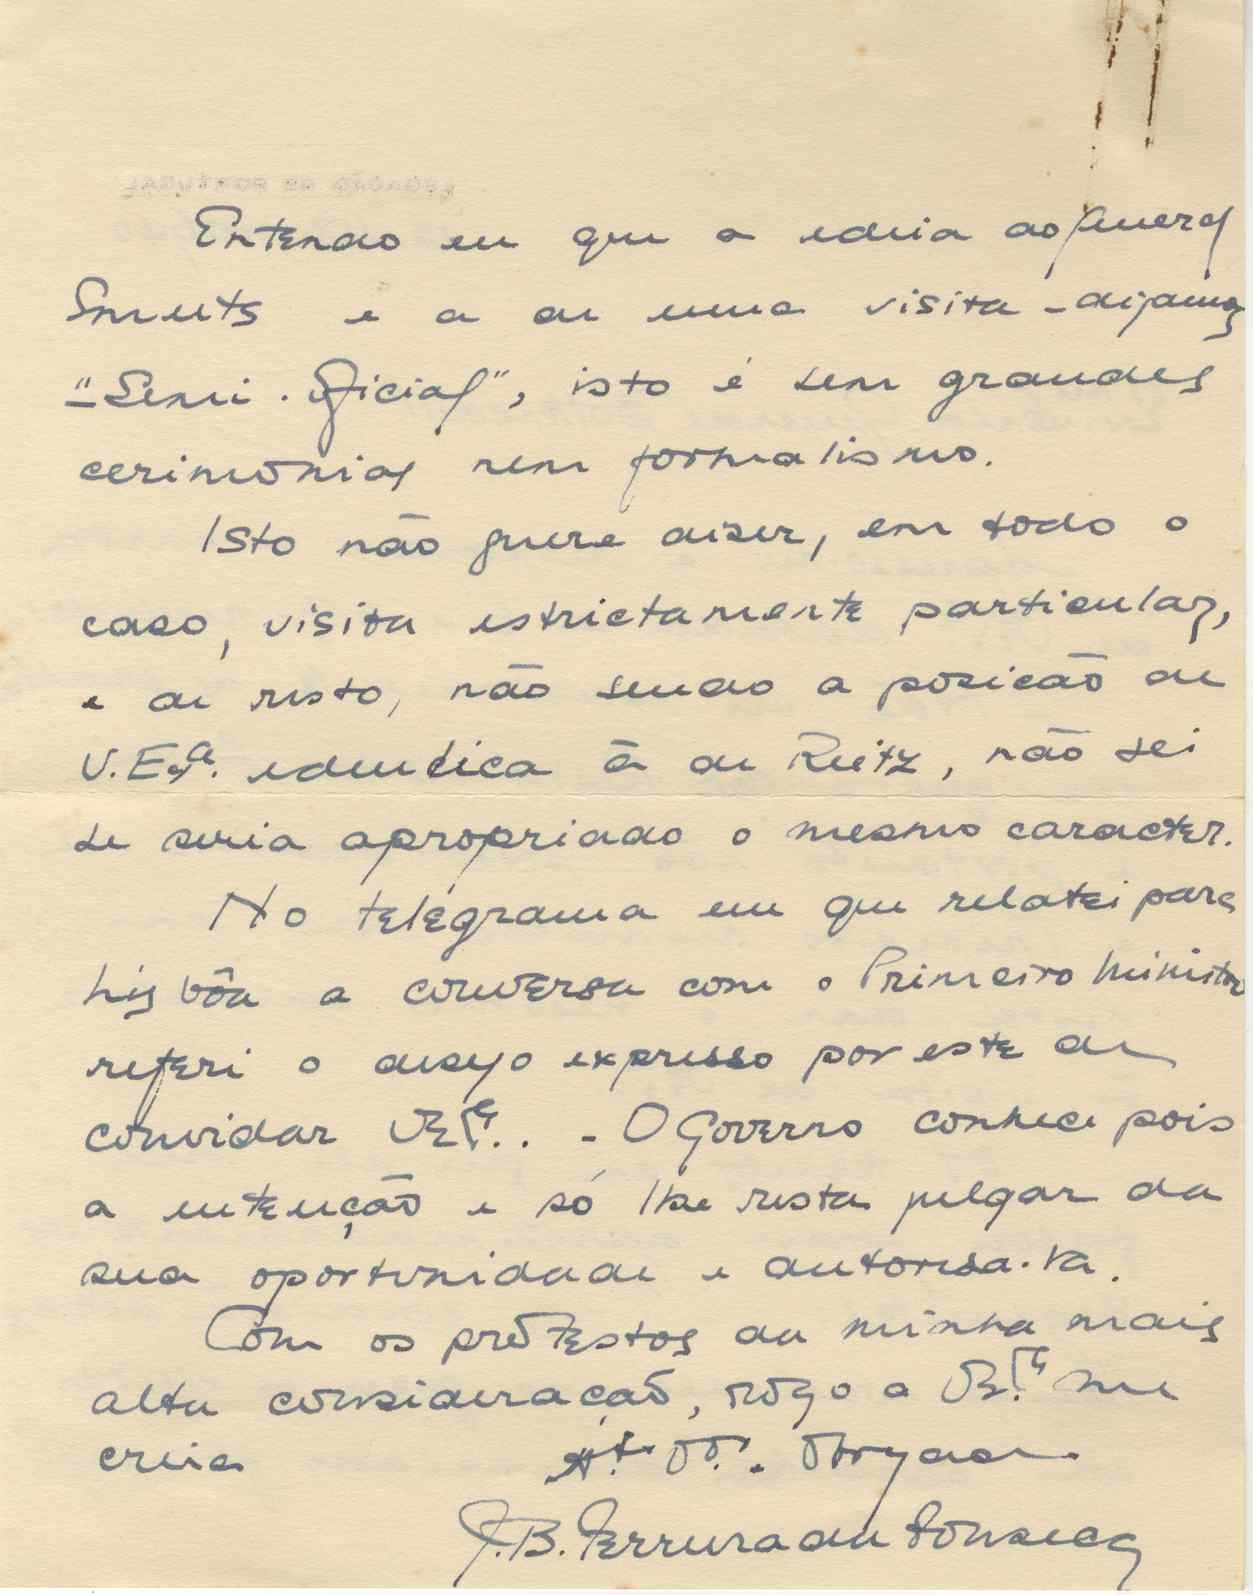 Entendo eu que a ideia do General
Smuts e a de uma visita - digamos
"Semi-Oficial", isto é sem grandes
cerimónias nem formalismo.
Isto não quere dizer, em todo o
caso, visita estrictamente particular,
e de resto, não sendo a posição de
V. Exª. identica à de Reitz, não sei
se seria apropriado o mesmo caracter.
No telégrama em que relatei para
Lisbôa a conversa com o Primeiro Ministro
referi o desejo expresso por este de
convidar VExª.. - O Governo conhece pois
a intenção e só lhe resta julgar da
sua oportunidade e autorisa-la.
Com os protestos da minha mais
alta consideração, rogo a VExª me
creia Atº Vºr. Obrgado
J.B. Ferreira da Fonseca